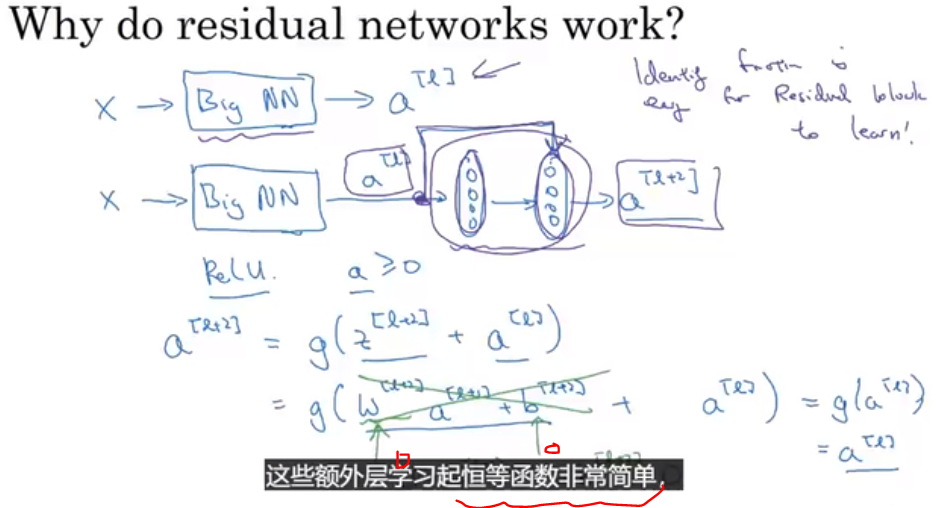 Why do residual networks work?
X → Big NN → a^[l]
Identity function is
easy for Residual block
to learn!
X → Big NN → a^[l] → a^[l+2]
ReLU. a ≥ 0
a^[l+2] = g(z^[l+2] + a^[l])
= g(W^[l+2] a^[l+1] + b^[l+2] + a^[l]) = g(a^[l])
= a^[l]
这些额外层学习起恒等函数非常简单，